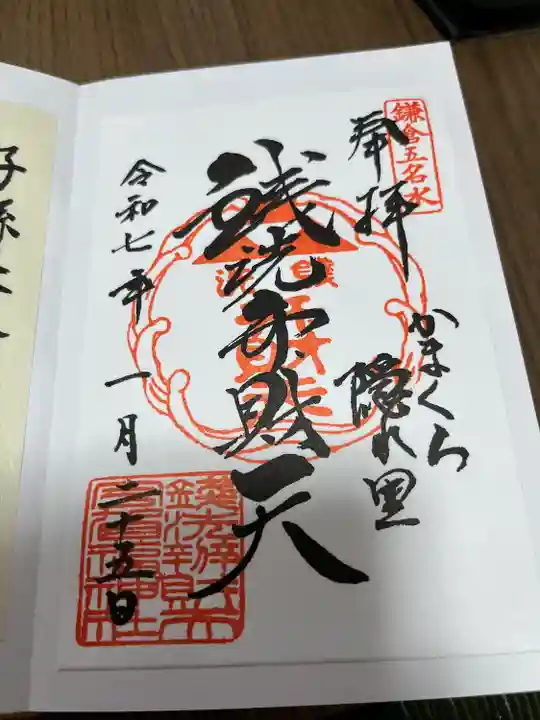 鎌倉五名水
奉拝
かまくら
隠れ里
銭洗弁財天
令和七年一月二十五日